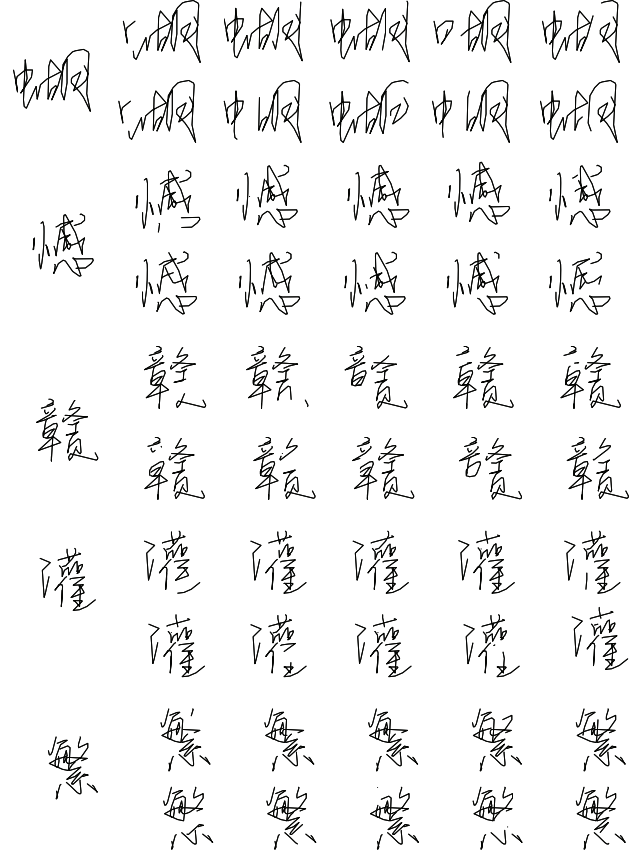 蝴 蝴 蝴 蝴 蝴 蝴
蝴 蝴 蝴 蝴 蝴
憾 憾 憾 憾 憾 憾
憾 憾 憾 憾 憾
赣 赣 赣 赣 赣 赣
赣 赣 赣 赣 赣
灌 灌 灌 灌 灌 灌
灌 灌 灌 灌 灌
繁 繁 繁 繁 繁 繁
繁 繁 繁 繁 繁